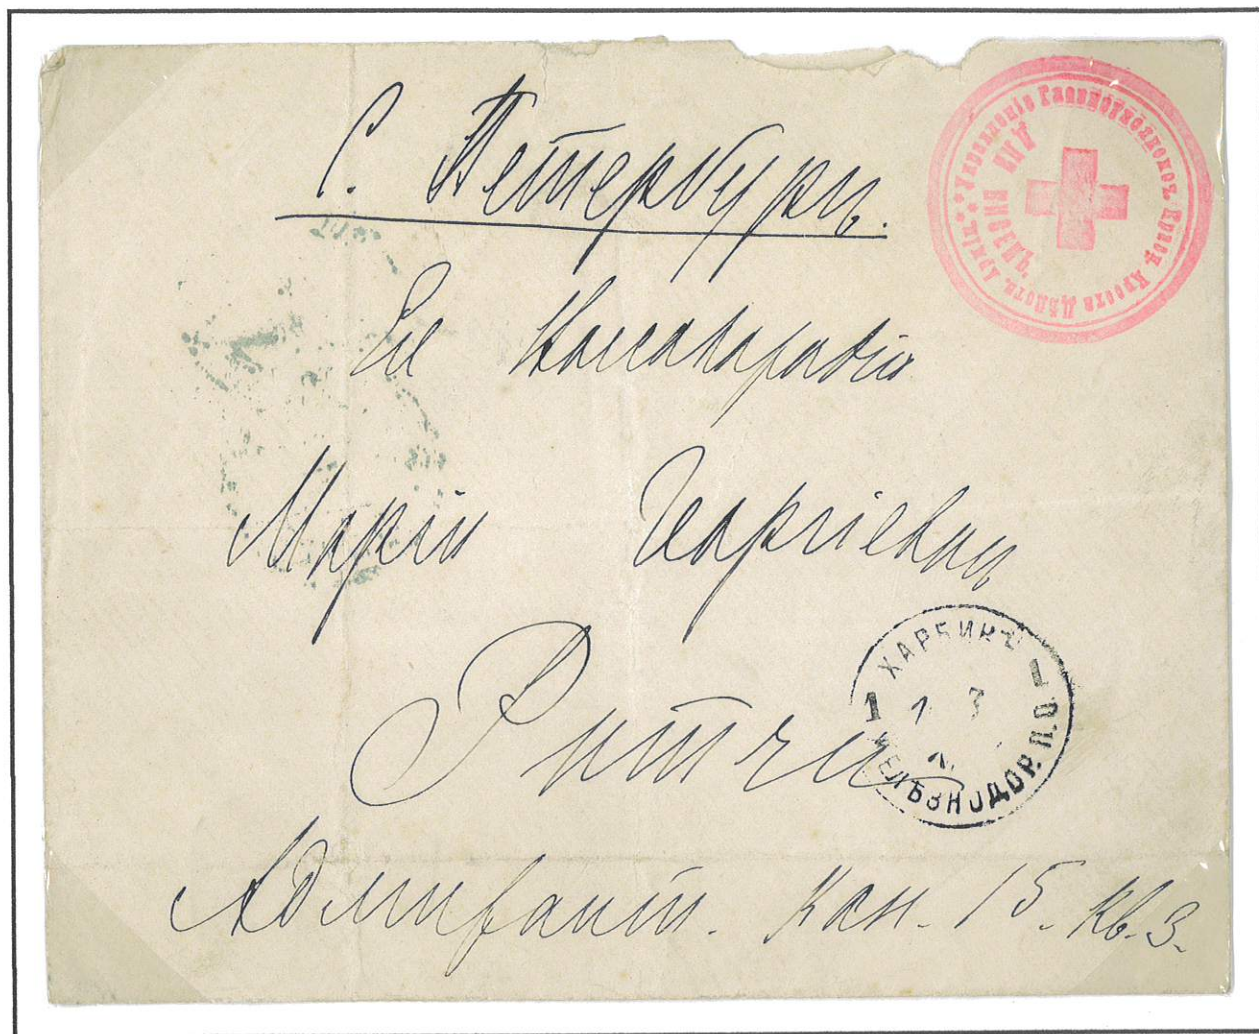 С. Петербургъ.
Ея
Маріи Георгіевнѣ
Ритчи
Адмиралт. Кан. 15. кв. 3.
Управленіе Главноуполномоч. Красн. Креста Дѣйств. Арміи
ДЛЯ ПИСЕМЪ
ХАРБИНЪ
1 1
ЖЕЛѢЗНОДОР. П.О.